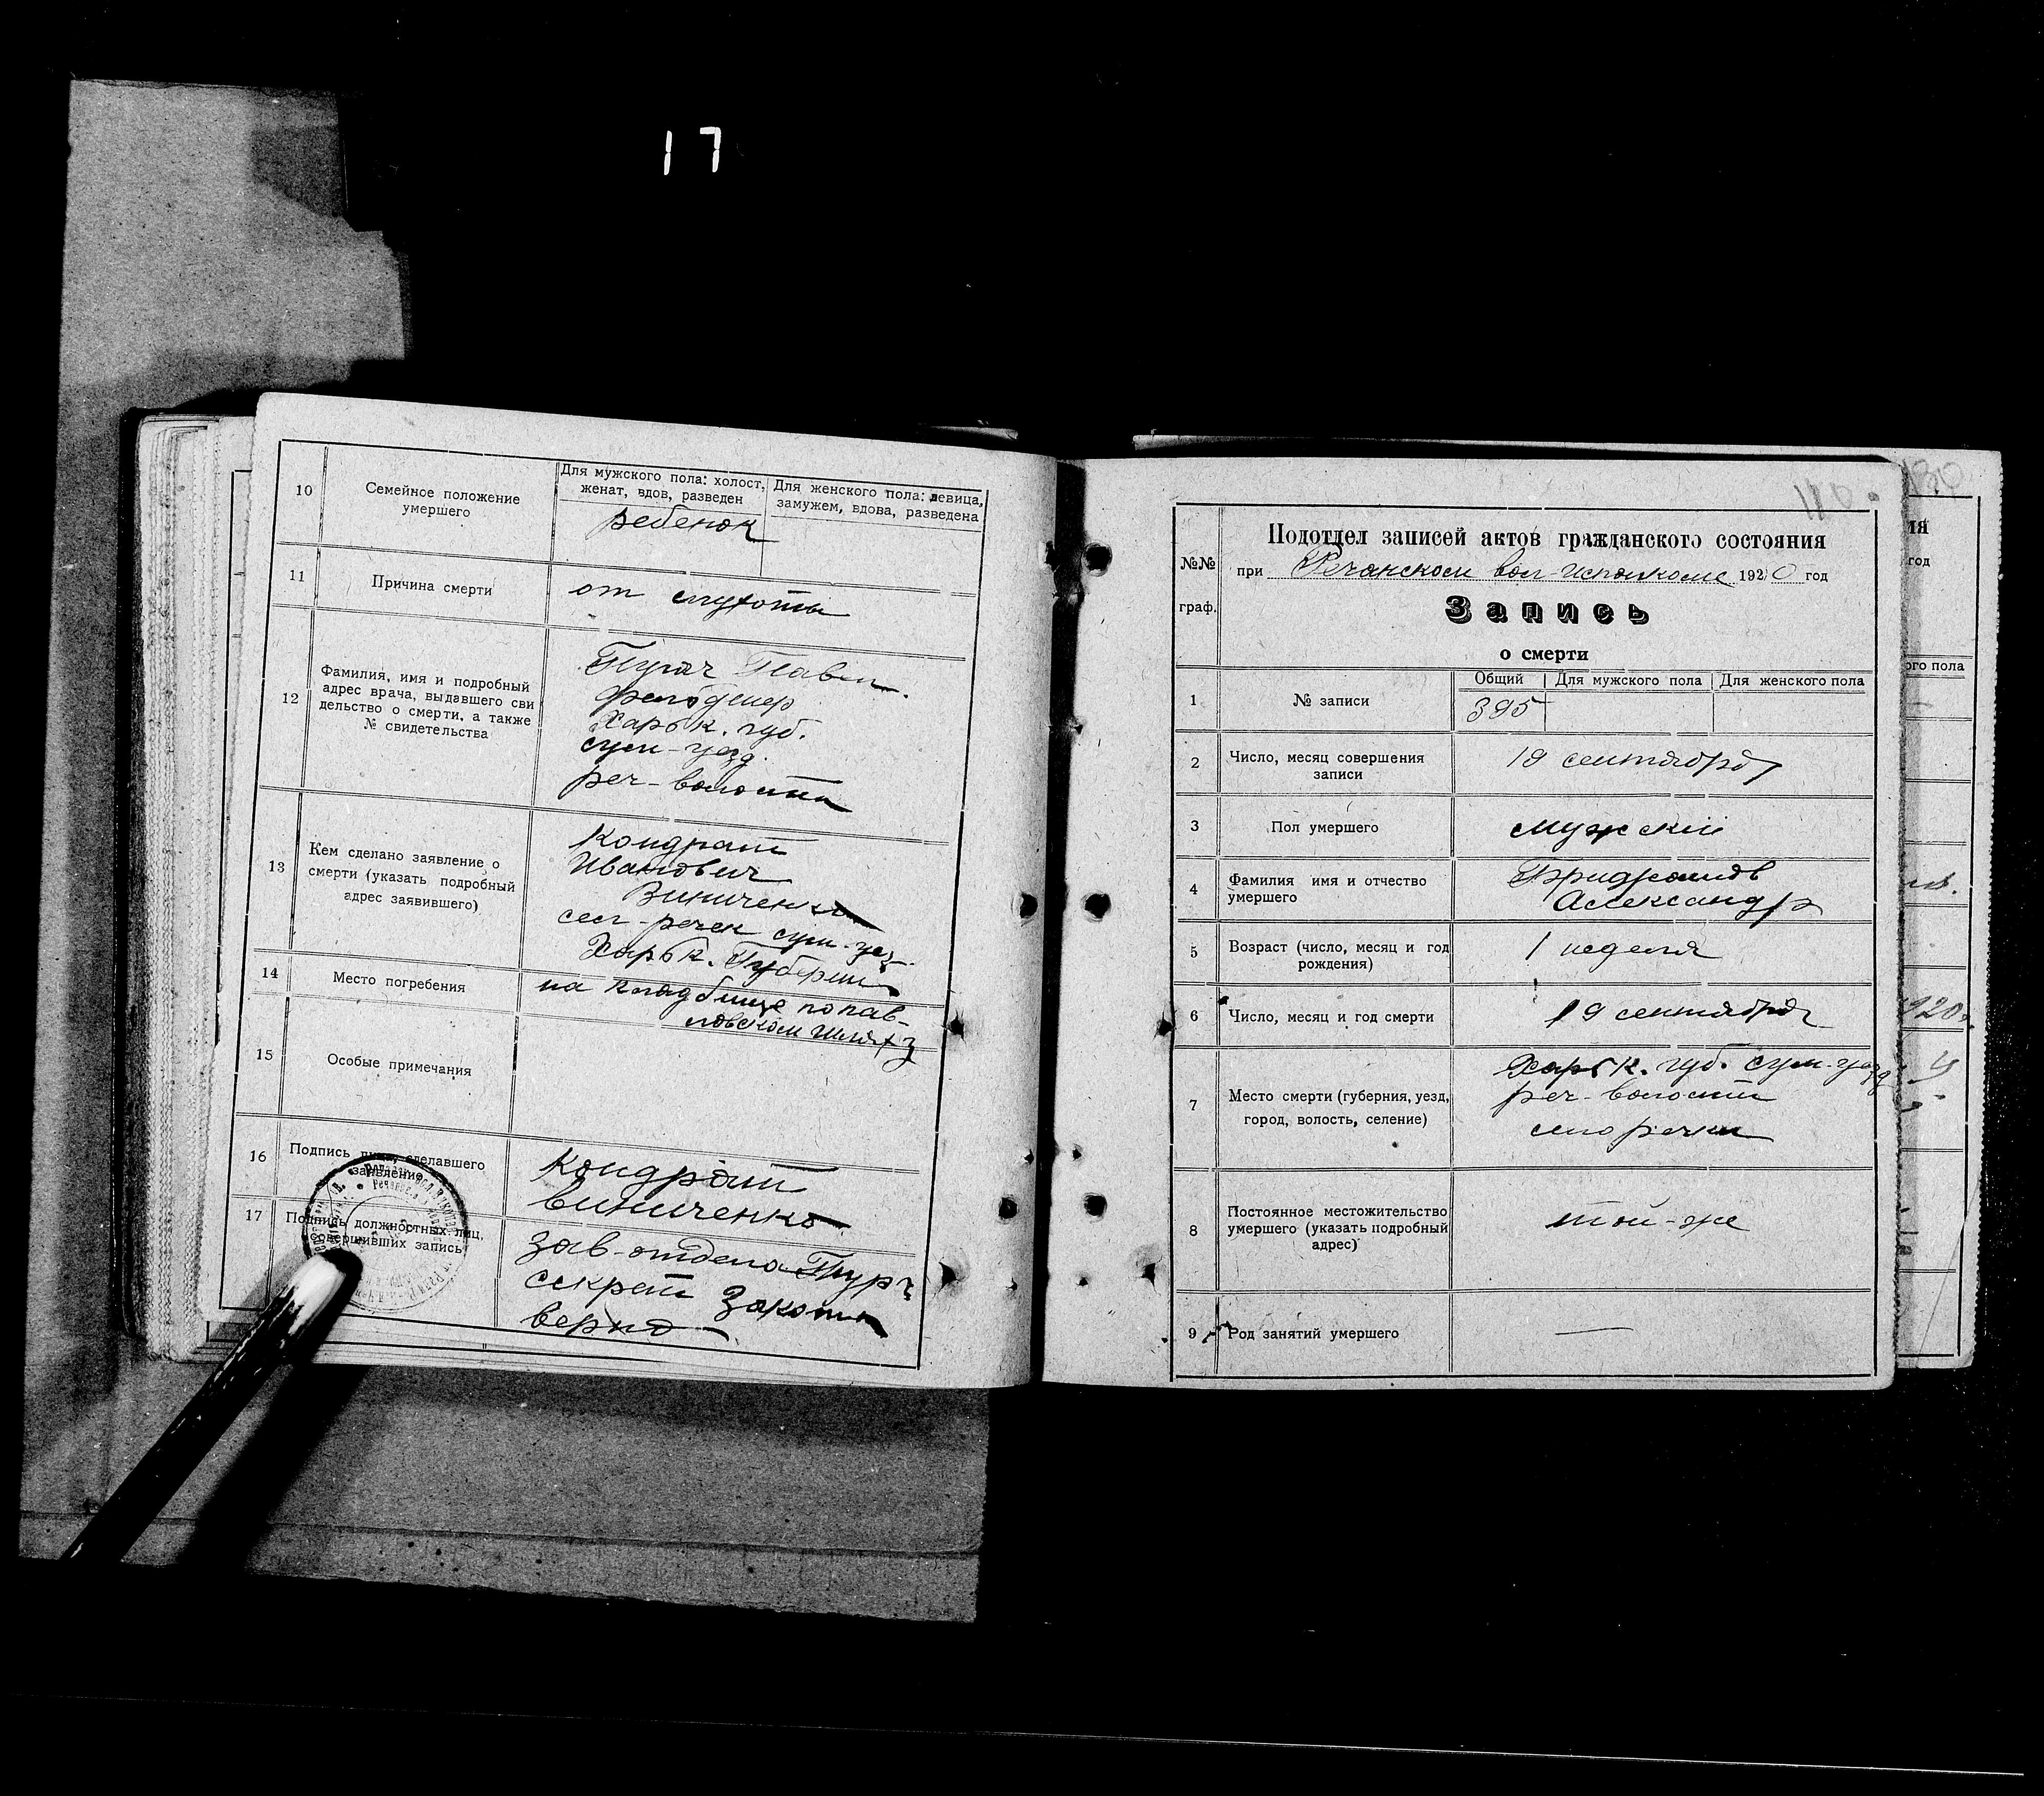 17
10
Семейное положение
умершего
Для мужского пола: холост,
женат, вдов, разведен
Для женского пола: девица,
замужем, вдова, разведена
ребенок
11
Причина смерти
от
12
Фамилия, имя и подробный
адрес врача, выдавшего сви
дельство о смерти, а также
№ свидетельства
Пугач Павел
Харьк. губ.
сум-уезд.
реч-волости
13
Кем сделано заявление о
смерти (указать подробный
адрес заявившего)
Кондрат
Иванович
Виниченко
сел-речек сум-уез.
Харьк. Губернии
14
Место погребения
на кладбище по пав-
ловском
15
Особые примечания
16
Подпись лица, сделавшего
заявление
Кондрат
Виниченко
17
Подпись должностных лиц,
совершивших запись
Зав-отдела
секрет
верно
180
№№
граф.
Подотдел записей актов гражданского состояния
при Речанском вол-исполкоме 1920 год
Запись
о смерти
1
№ записи
Общий
Для мужского пола
Для женского пола
395
2
Число, месяц совершения
записи
19 сентября
3
Пол умершего
мужский
4
Фамилия имя и отчество
умершего
Александр
5
Возраст (число, месяц и год
рождения)
1 неделя
6
Число, месяц и год смерти
19 сентября
7
Место смерти (губерния, уезд,
город, волость, селение)
Харьк. губ. сум-уезд
реч-волости
село речки
8
Постоянное местожительство
умершего (указать подробный
адрес)
той-же
9
Род занятий умершего
—